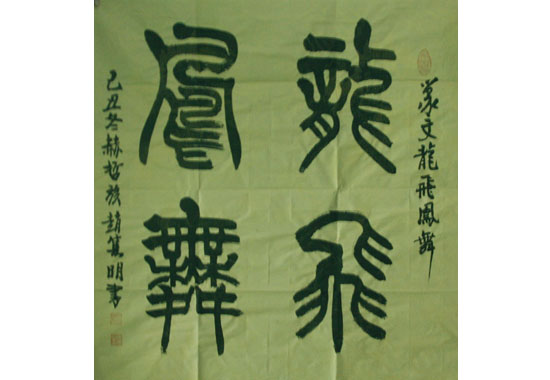 篆文龍飛鳳舞
龍飛
鳳舞
己丑冬赫哲族趙明書